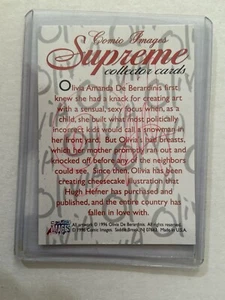 Comic Images
Supreme
collector cards
Olivia Amanda De Berardinis first
knew she had a knack for creating art
with a sensual, sexy focus when, as a
child, she built what most politically
incorrect kids would call a snowman in
her front yard. But Olivia's had breasts,
which her mother promptly ran out and
knocked off before any of the neighbors
could see. Since then, Olivia has been
creating cheesecake illustration that
Hugh Hefner has purchased and
published, and the entire country has
fallen in love with.
All artwork © 1996 Olivia De Berardinis. All rights reserved.
© 1996 Comic Images. Saddle Brook, NJ 07663. Made in U.S.A.